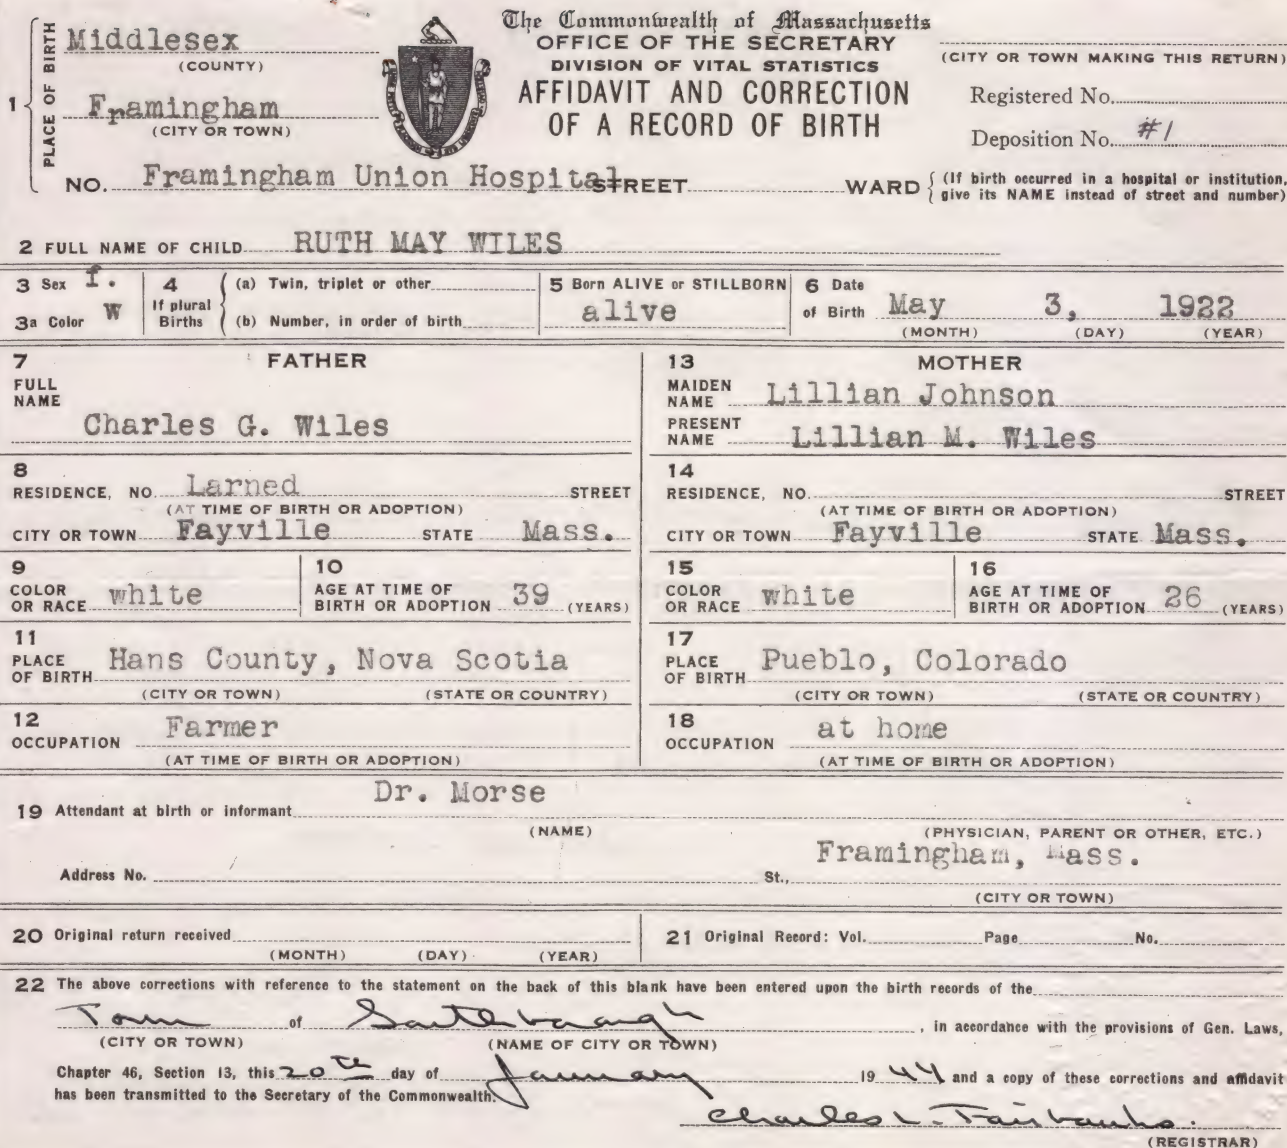 The Commonwealth of Massachusetts
OFFICE OF THE SECRETARY
DIVISION OF VITAL STATISTICS
AFFIDAVIT AND CORRECTION
OF A RECORD OF BIRTH
1 PLACE OF BIRTH
Middlesex
(COUNTY)
Framingham
(CITY OR TOWN)
NO. Framingham Union Hospital STREET WARD (If birth occurred in a hospital or institution, give its NAME instead of street and number)
(CITY OR TOWN MAKING THIS RETURN)
Registered No.
Deposition No. #1
2 FULL NAME OF CHILD RUTH MAY WILES
3 Sex f.
3a Color W
4 If plural Births
(a) Twin, triplet or other
(b) Number, in order of birth
5 Born ALIVE or STILLBORN
alive
6 Date of Birth May 3, 1922
(MONTH) (DAY) (YEAR)
7 FATHER
FULL NAME
Charles G. Wiles
8
RESIDENCE, NO. Larned STREET
(AT TIME OF BIRTH OR ADOPTION)
CITY OR TOWN Fayville STATE Mass.
9
COLOR OR RACE white
10
AGE AT TIME OF BIRTH OR ADOPTION 39 (YEARS)
11
PLACE OF BIRTH Hans County, Nova Scotia
(CITY OR TOWN) (STATE OR COUNTRY)
12
OCCUPATION Farmer
(AT TIME OF BIRTH OR ADOPTION)
13 MOTHER
MAIDEN NAME Lillian Johnson
PRESENT NAME Lillian M. Wiles
14
RESIDENCE, NO. STREET
(AT TIME OF BIRTH OR ADOPTION)
CITY OR TOWN Fayville STATE Mass.
15
COLOR OR RACE white
16
AGE AT TIME OF BIRTH OR ADOPTION 26 (YEARS)
17
PLACE OF BIRTH Pueblo, Colorado
(CITY OR TOWN) (STATE OR COUNTRY)
18
OCCUPATION at home
(AT TIME OF BIRTH OR ADOPTION)
19 Attendant at birth or informant Dr. Morse
(NAME) (PHYSICIAN, PARENT OR OTHER, ETC.)
Framingham, Mass.
Address No. St.,
(CITY OR TOWN)
20 Original return received
(MONTH) (DAY) (YEAR)
21 Original Record: Vol. Page No.
22 The above corrections with reference to the statement on the back of this blank have been entered upon the birth records of the
Town of Southborough , in accordance with the provisions of Gen. Laws,
(CITY OR TOWN) (NAME OF CITY OR TOWN)
Chapter 46, Section 13, this 20th day of January 1944 and a copy of these corrections and affidavit
has been transmitted to the Secretary of the Commonwealth.
Charles L. Fairbanks.
(REGISTRAR)